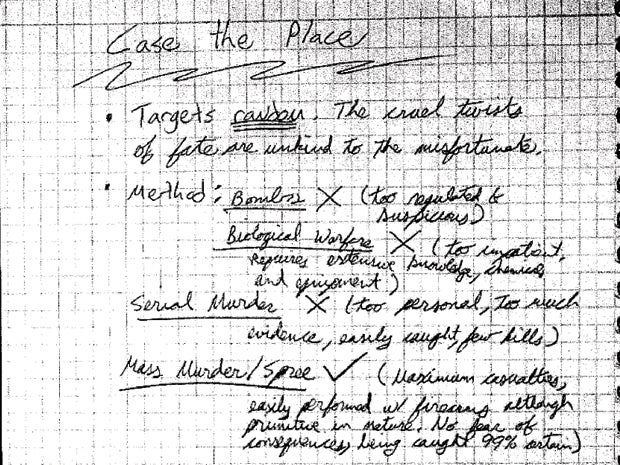 Case the Place
• Targets random. The cruel twists
of fate are unkind to the misfortunate.
• Method: Bombs X (too regulated &
suspicious)
Biological Warfare X (too impatient.
Requires extensive knowledge, chemicals
and equipment)
Serial Murder X (too personal, too much
evidence, easily caught, few kills)
Mass Murder/Spree ✓ (Maximum casualties,
easily performed w/ firearms although
primitive in nature. No fear of
consequences, being caught 99% certain)